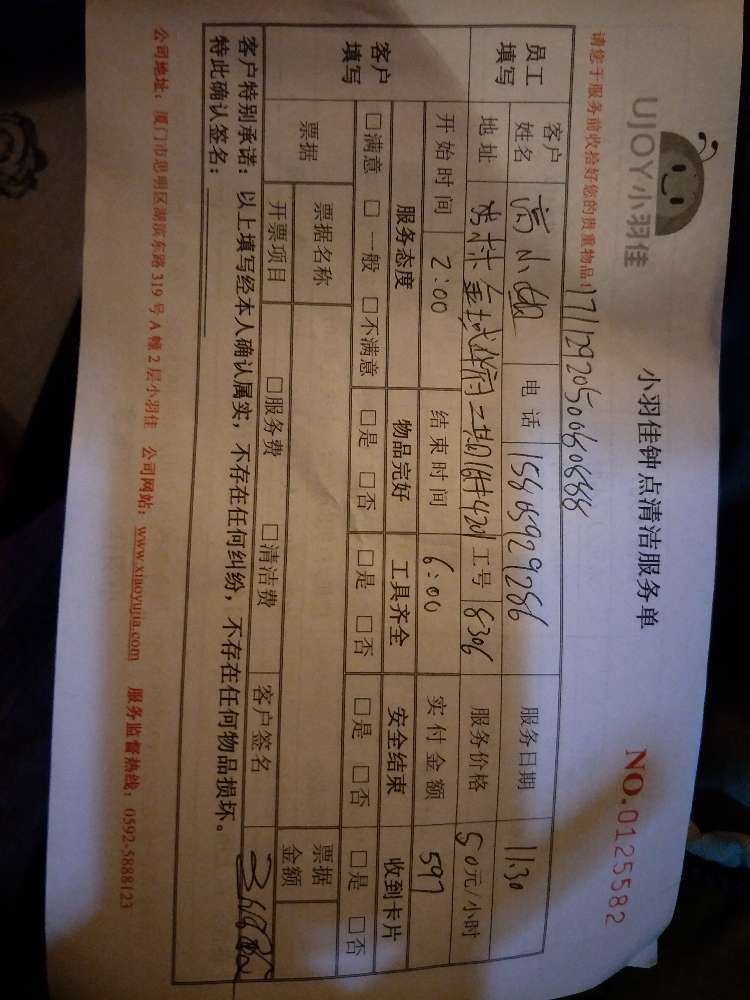 UJOY小羽佳
小羽佳钟点清洁服务单
NO.0125582
请您于服务前收拾好您的贵重物品!
员工填写
客户姓名 高小姐 电话 1585929286 服务日期 11.30
地址 工号 8306 服务价格 50元/小时
开始时间 2:00 结束时间 6:00 实付金额 597
客户填写
服务态度 物品完好 工具齐全 安全结束 收到卡片
□满意 □一般 □不满意 □是 □否 □是 □否 □是 □否 □是 □否
票据 票据名称 票据金额
开票项目 □服务费 □清洁费 客户签名
客户特别承诺:以上填写经本人确认属实,不存在任何纠纷,不存在任何物品损坏。
特此确认签名:
公司地址:厦门市思明区湖滨东路 319 号 A 幢 2 层小羽佳 公司网站:www.xiaoyujia.com 服务监督热线:0592-5888123